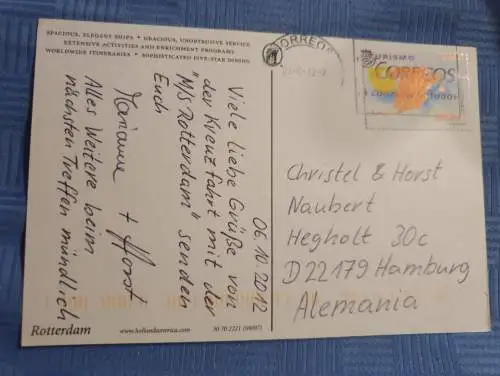 SPACIOUS, ELEGANT SHIPS • GRACIOUS, UNOBTRUSIVE SERVICE
EXTENSIVE ACTIVITIES AND ENRICHMENT PROGRAMS
WORLDWIDE ITINERARIES • SOPHISTICATED FIVE-STAR DINING
06.10.2012
Viele liebe Grüße von
"der Kreuzfahrt mit der
M/S Rotterdam" senden
Euch
Marianne + Horst
Alles Weitere beim
nächsten Treffen mündlich
CORREOS
TURISMO
CORREOS
Christel & Horst
Naubert
Hegholt 30c
D 22179 Hamburg
Alemania
Rotterdam
www.hollandamerica.com